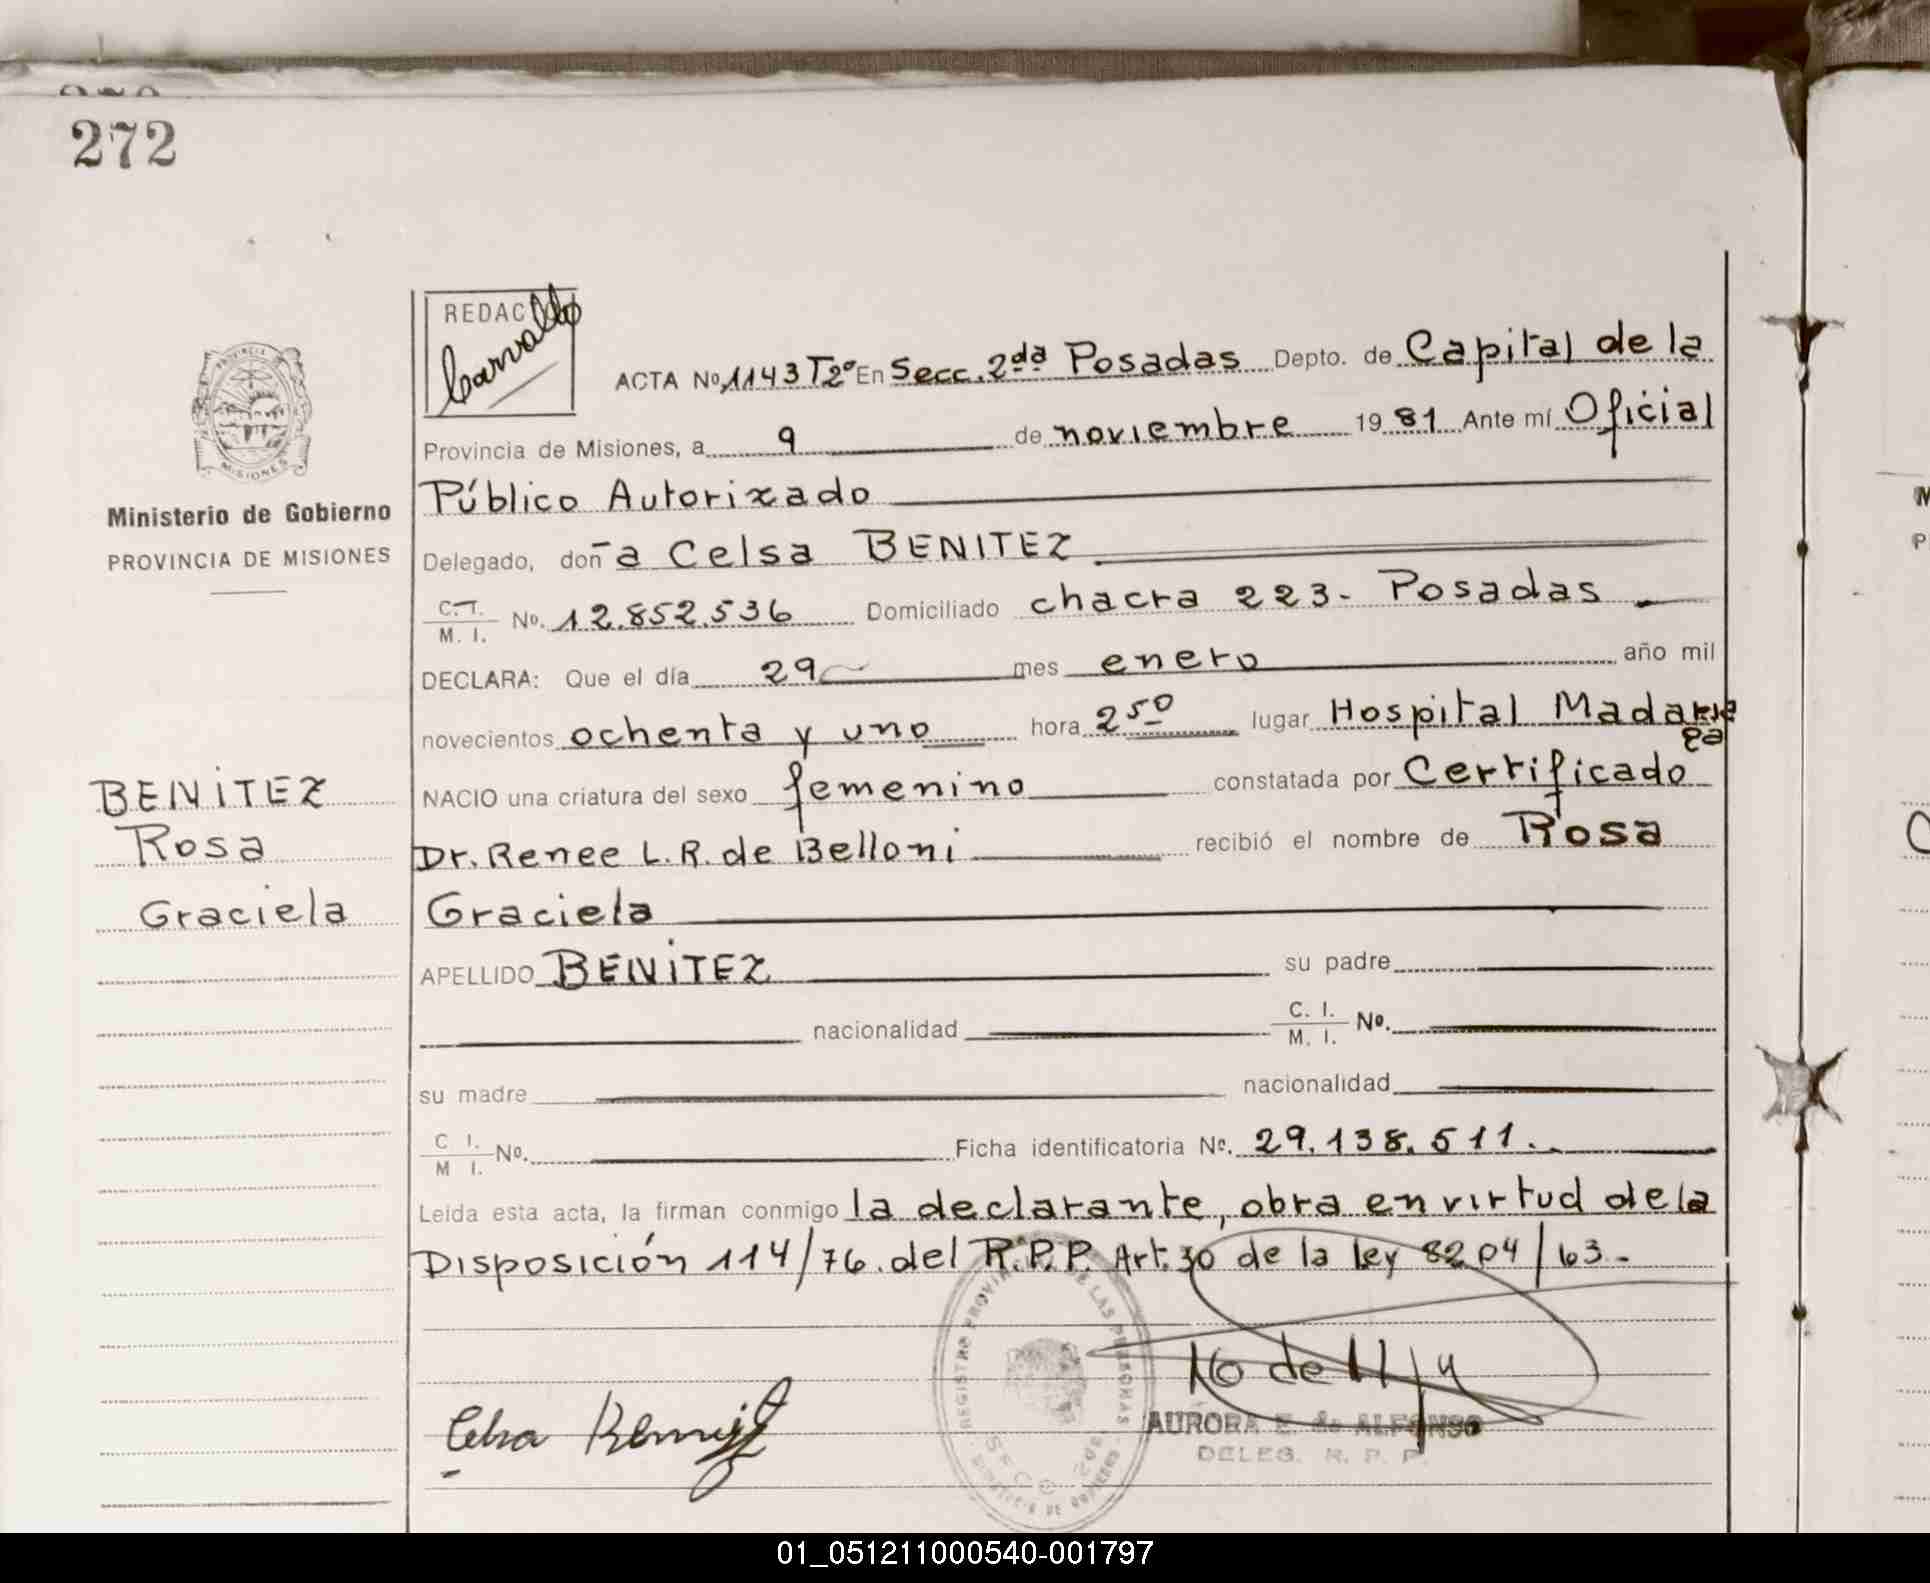 272
REDAC
Carvallo
ACTA No. 1143 T2º En Secc. 2da Posadas Depto. de Capital de la
Provincia de Misiones, a 9 de noviembre 1981 Ante mí Oficial
Público Autorizado
Ministerio de Gobierno
PROVINCIA DE MISIONES
Delegado, doña Celsa BENITEZ
C.I. M. I. No. 12.852.536 Domiciliado chacra 223 - Posadas
DECLARA: Que el día 29 mes enero año mil
novecientos ochenta y uno hora 2 50 lugar Hospital Madariaga
BENITEZ
Rosa
Graciela
NACIO una criatura del sexo femenino constatada por Certificado
Dr. Renee L. R. de Belloni recibió el nombre de Rosa
Graciela
APELLIDO BENITEZ su padre
nacionalidad C. I. M. I. No.
su madre nacionalidad
C I. M I. No. Ficha identificatoria No. 29.138.511.
Leida esta acta, la firman conmigo la declarante, obra en virtud de la
Disposición 114/76 del R.P.P. Art. 30 de la ley 8204/63.-
Celsa Benitez
AURORA E. de ALFONSO
DELEG. R. P. P.
01_051211000540-001797